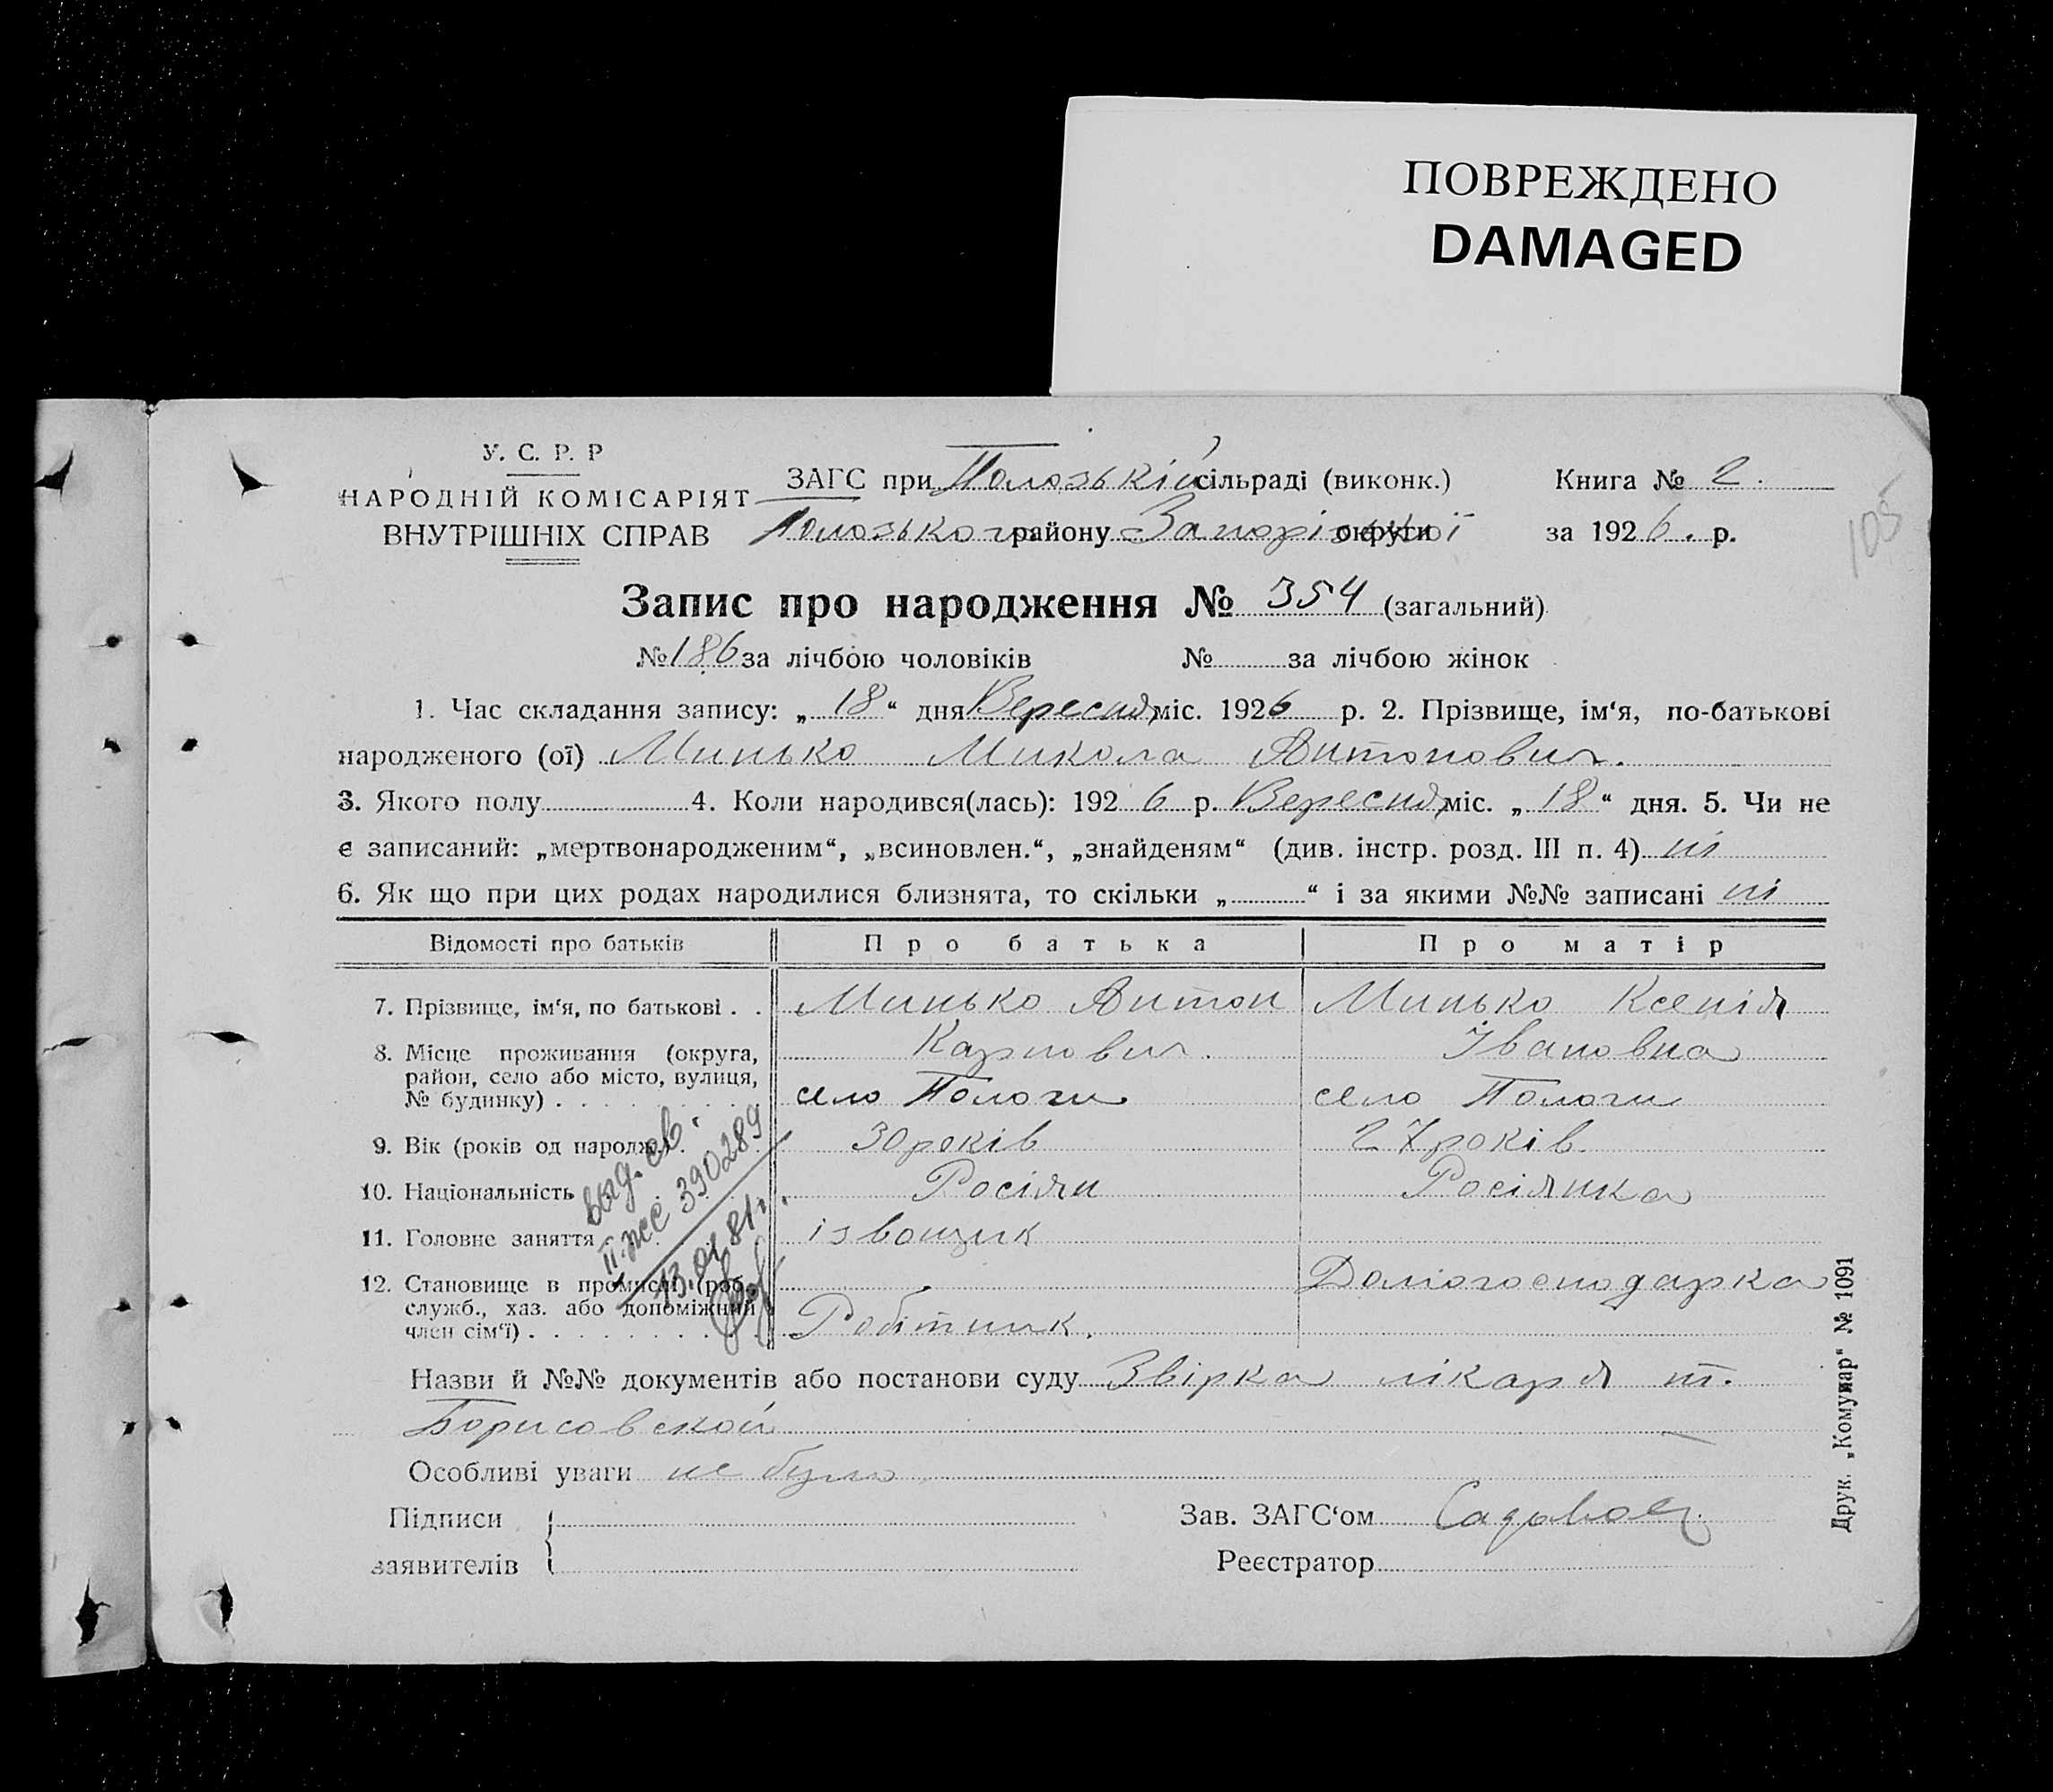 ПОВРЕЖДЕНО
DAMAGED
У. С. Р. Р
НАРОДНІЙ КОМІСАРІЯТ
ВНУТРІШНІХ СПРАВ
ЗАГС при Полозькій сільраді (виконк.)
Полозького району Запорізської округи
Книга № 2.
за 1926. р.
105
Запис про народження № 354 (загальний)
№ 186 за лічбою чоловіків № за лічбою жінок
1. Час складання запису: „ 18 “ дня Вересня міс. 1926 р. 2. Прізвище, ім‘я, по-батькові
народженого (ої) Минько Микола Антонович.
3. Якого полу 4. Коли народився(лась): 1926 р. Вересня міс. „ 18 “ дня. 5. Чи не
є записаний: „мертвонародженим“, „всиновлен.“, „знайденям“ (див. інстр. розд. III п. 4) ні
6. Як що при цих родах народилися близнята, то скільки „ “ і за якими №№ записані ні
Відомості про батьків Про батька Про матір
7. Прізвище, ім‘я, по батькові . . Минько Антон Минько Ксенія
Карпович. Івановна
8. Місце проживання (округа,
район, село або місто, вулиця,
№ будинку) . село Пологи село Пологи
9. Вік (років од народж.) . 30 років 27 років.
10. Національність Росіян Росіянка
11. Головне заняття ізвощик
12. Становище в промислі (роб.,
служб., хаз. або допоміжний
член сім‘ї) . Робітник. Домогосподарка
выд. св.
II-ЖС 390289
13.01.81г.
Назви й №№ документів або постанови суду Звірка лікаря т.
Борисовской
Особливі уваги не було
Підписи
заявителів
Зав. ЗАГС‘ом
Реєстратор
Друк. „Комунар“ № 1091